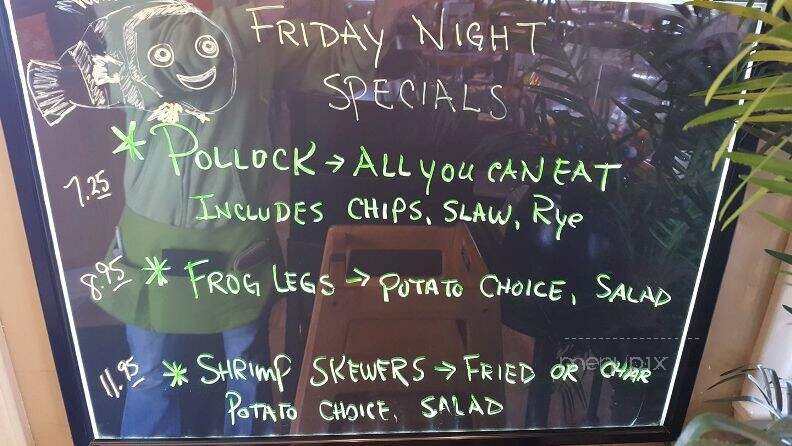 FRIDAY NIGHT
SPECIALS
* POLLOCK → ALL YOU CAN EAT
7.25
INCLUDES CHIPS, SLAW, Rye
8.95 * FROG LEGS → POTATO CHOICE, SALAD
11.95 * SHRIMP SKEWERS → FRIED OR CHAR
POTATO CHOICE, SALAD
menupix